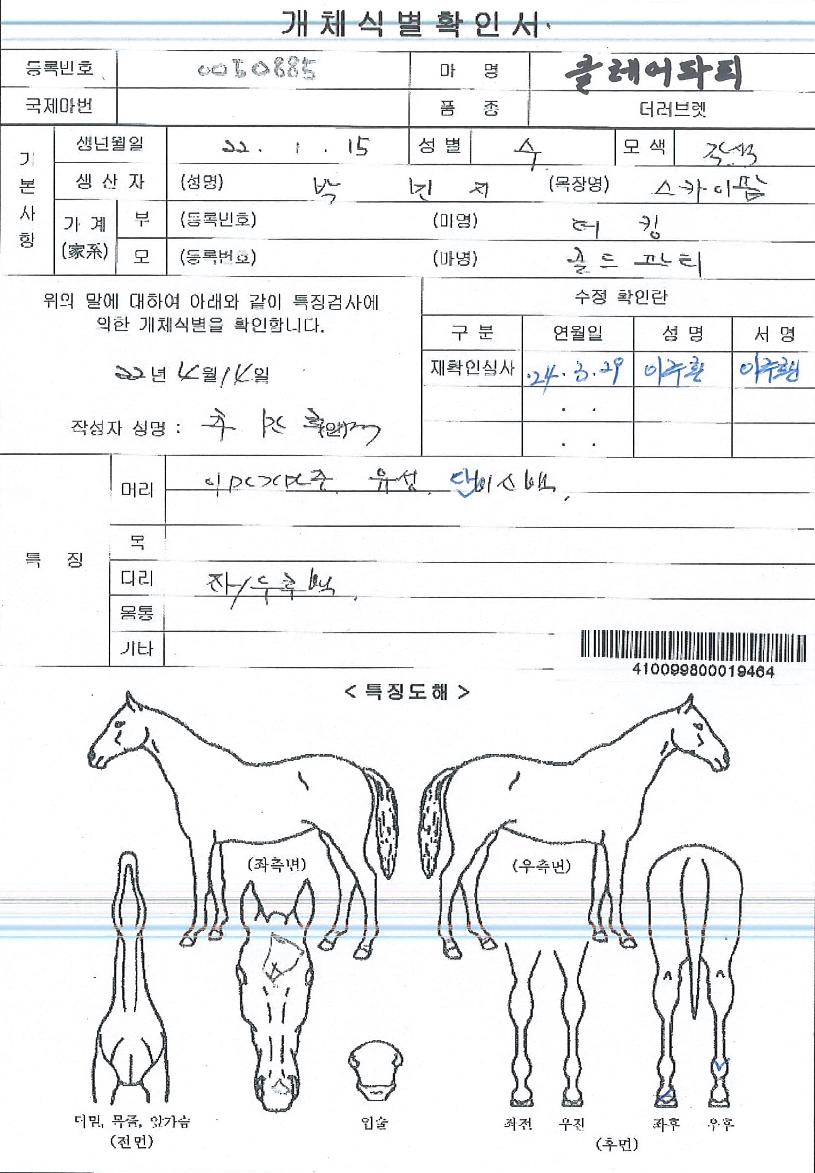 개체식별확인서
등록번호 0050885 마 명 클레어파티
국제마번 품 종 더러브렛
기본사항
생년월일 22. 1. 15 성별 수 모색 갈색
생산자 (성명) 박 민 지 (목장명) 스카이팜
가계 (家系) 부 (등록번호) (마명) 더 킹
모 (등록번호) (마명) 골드 파티
위의 말에 대하여 아래와 같이 특징검사에
의한 개체식별을 확인합니다.
22년 4월 14일
작성자 성명 :
수정 확인란
구 분 연월일 성 명 서 명
재확인심사 24. 3. 29
. .
. .
특 징
머리 유성.
목
다리
몸통
기타
410099800019464
< 특징도해 >
(좌측면) (우측면)
더밑, 목줄, 앞가슴
(전면)
입술
좌전 우전 좌후 우후
(후면)